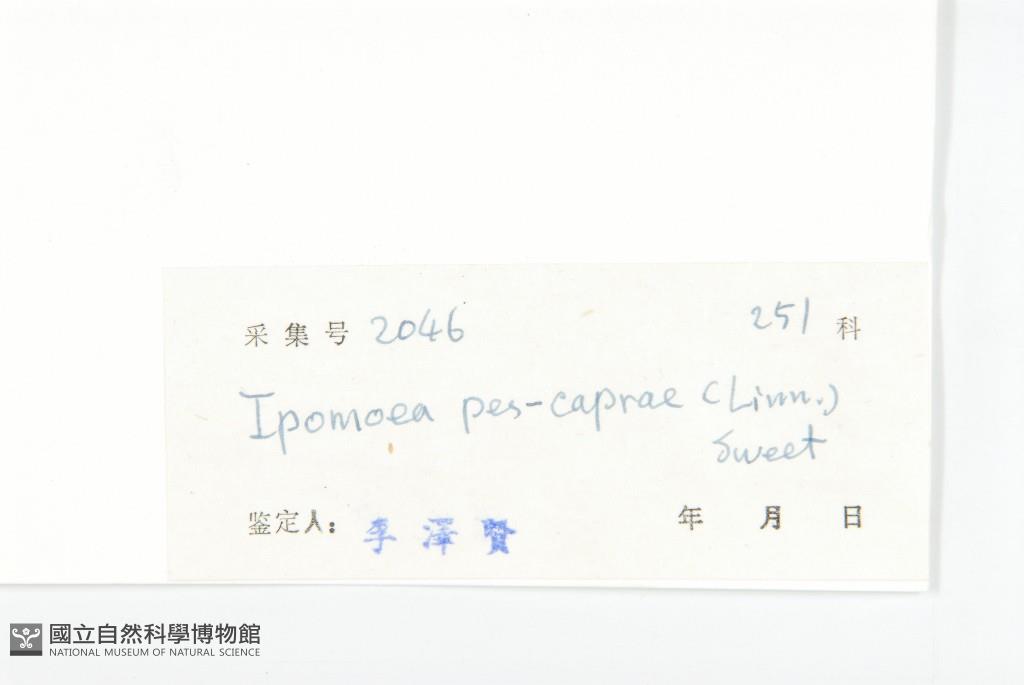 采集号 2046 251 科
Ipomoea pes-caprae (Linn.)
Sweet
鉴定人: 李澤賢 年 月 日
國立自然科學博物館
NATIONAL MUSEUM OF NATURAL SCIENCE